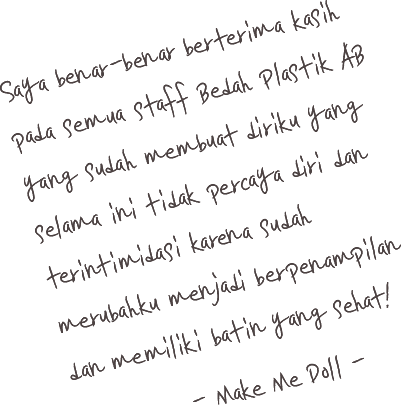 Saya benar-benar berterima kasih
pada semua staff Bedah Plastik AB
yang sudah membuat diriku yang
selama ini tidak percaya diri dan
terintimidasi karena sudah
merubahku menjadi berpenampilan
dan memiliki batin yang sehat!
- Make Me Doll -